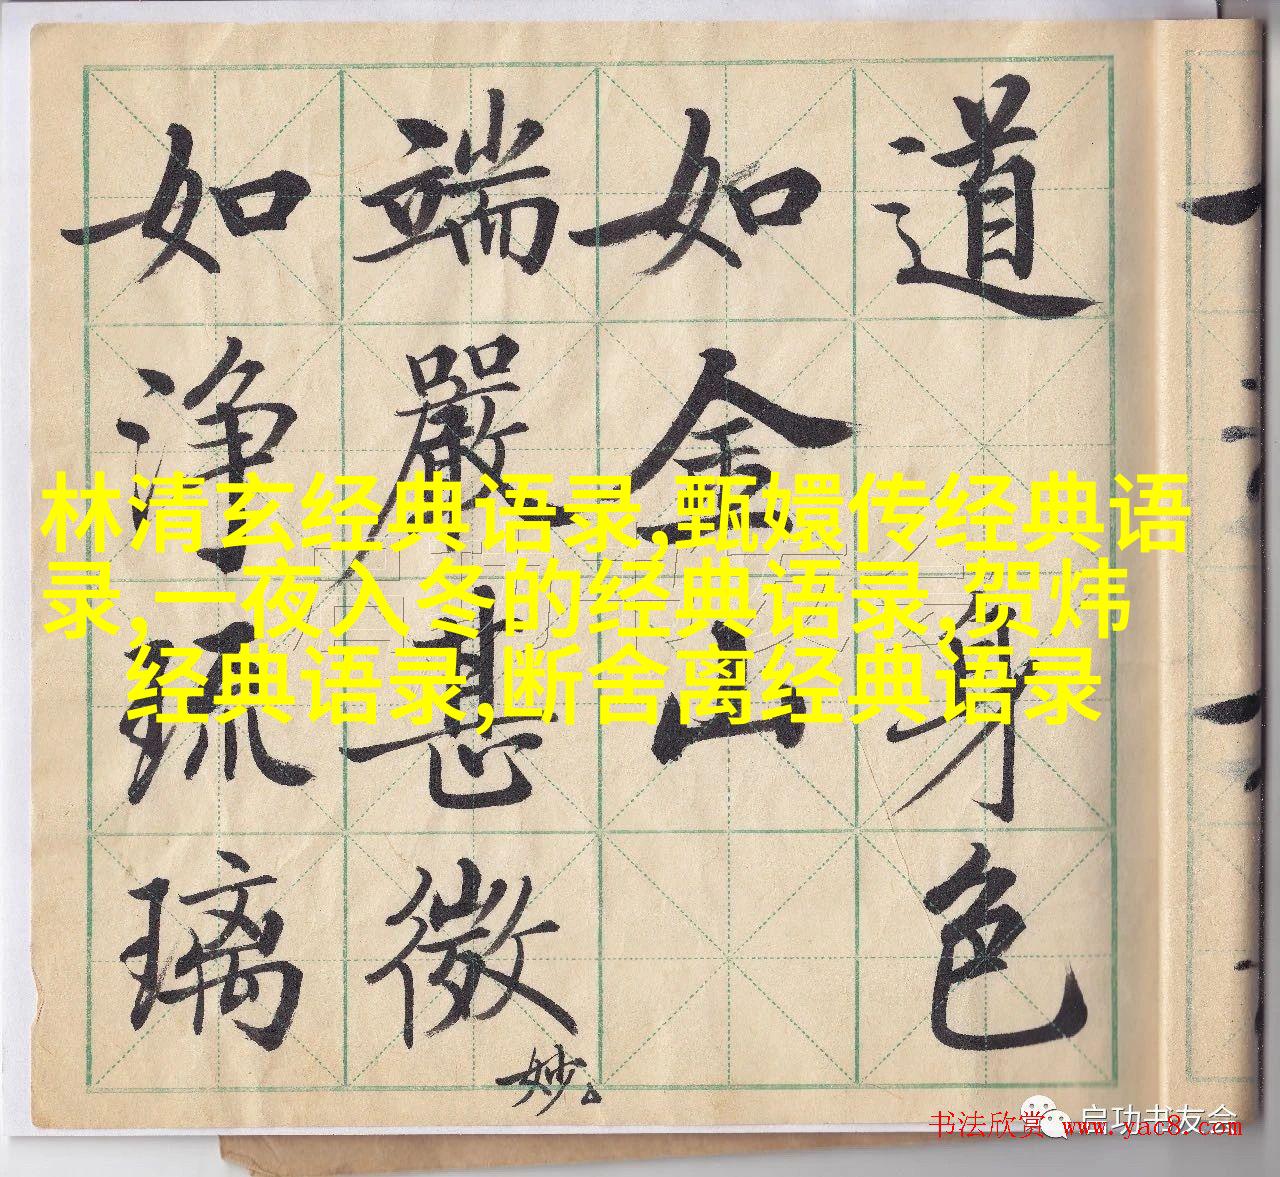 道身色
如金山
端嚴甚微妙。
如净琉璃
林清玄经典语录,甄嬛传经典语
录,一夜入冬的经典语录,贺炜
经典语录,断舍离经典语录
启功书友会
书法欣赏 www.yac8.com